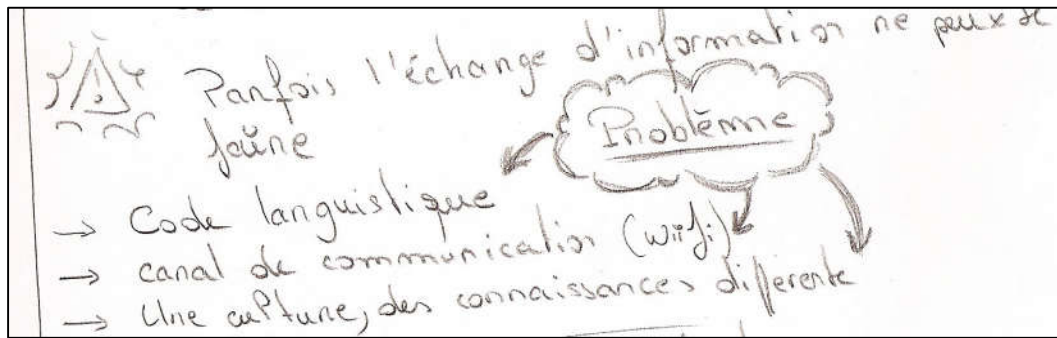 Parfois l'échange d'information ne peux se
faîre
Problème
→ Code languistique
→ canal de communication (wiifi)
→ Une culture, des connaissances différente